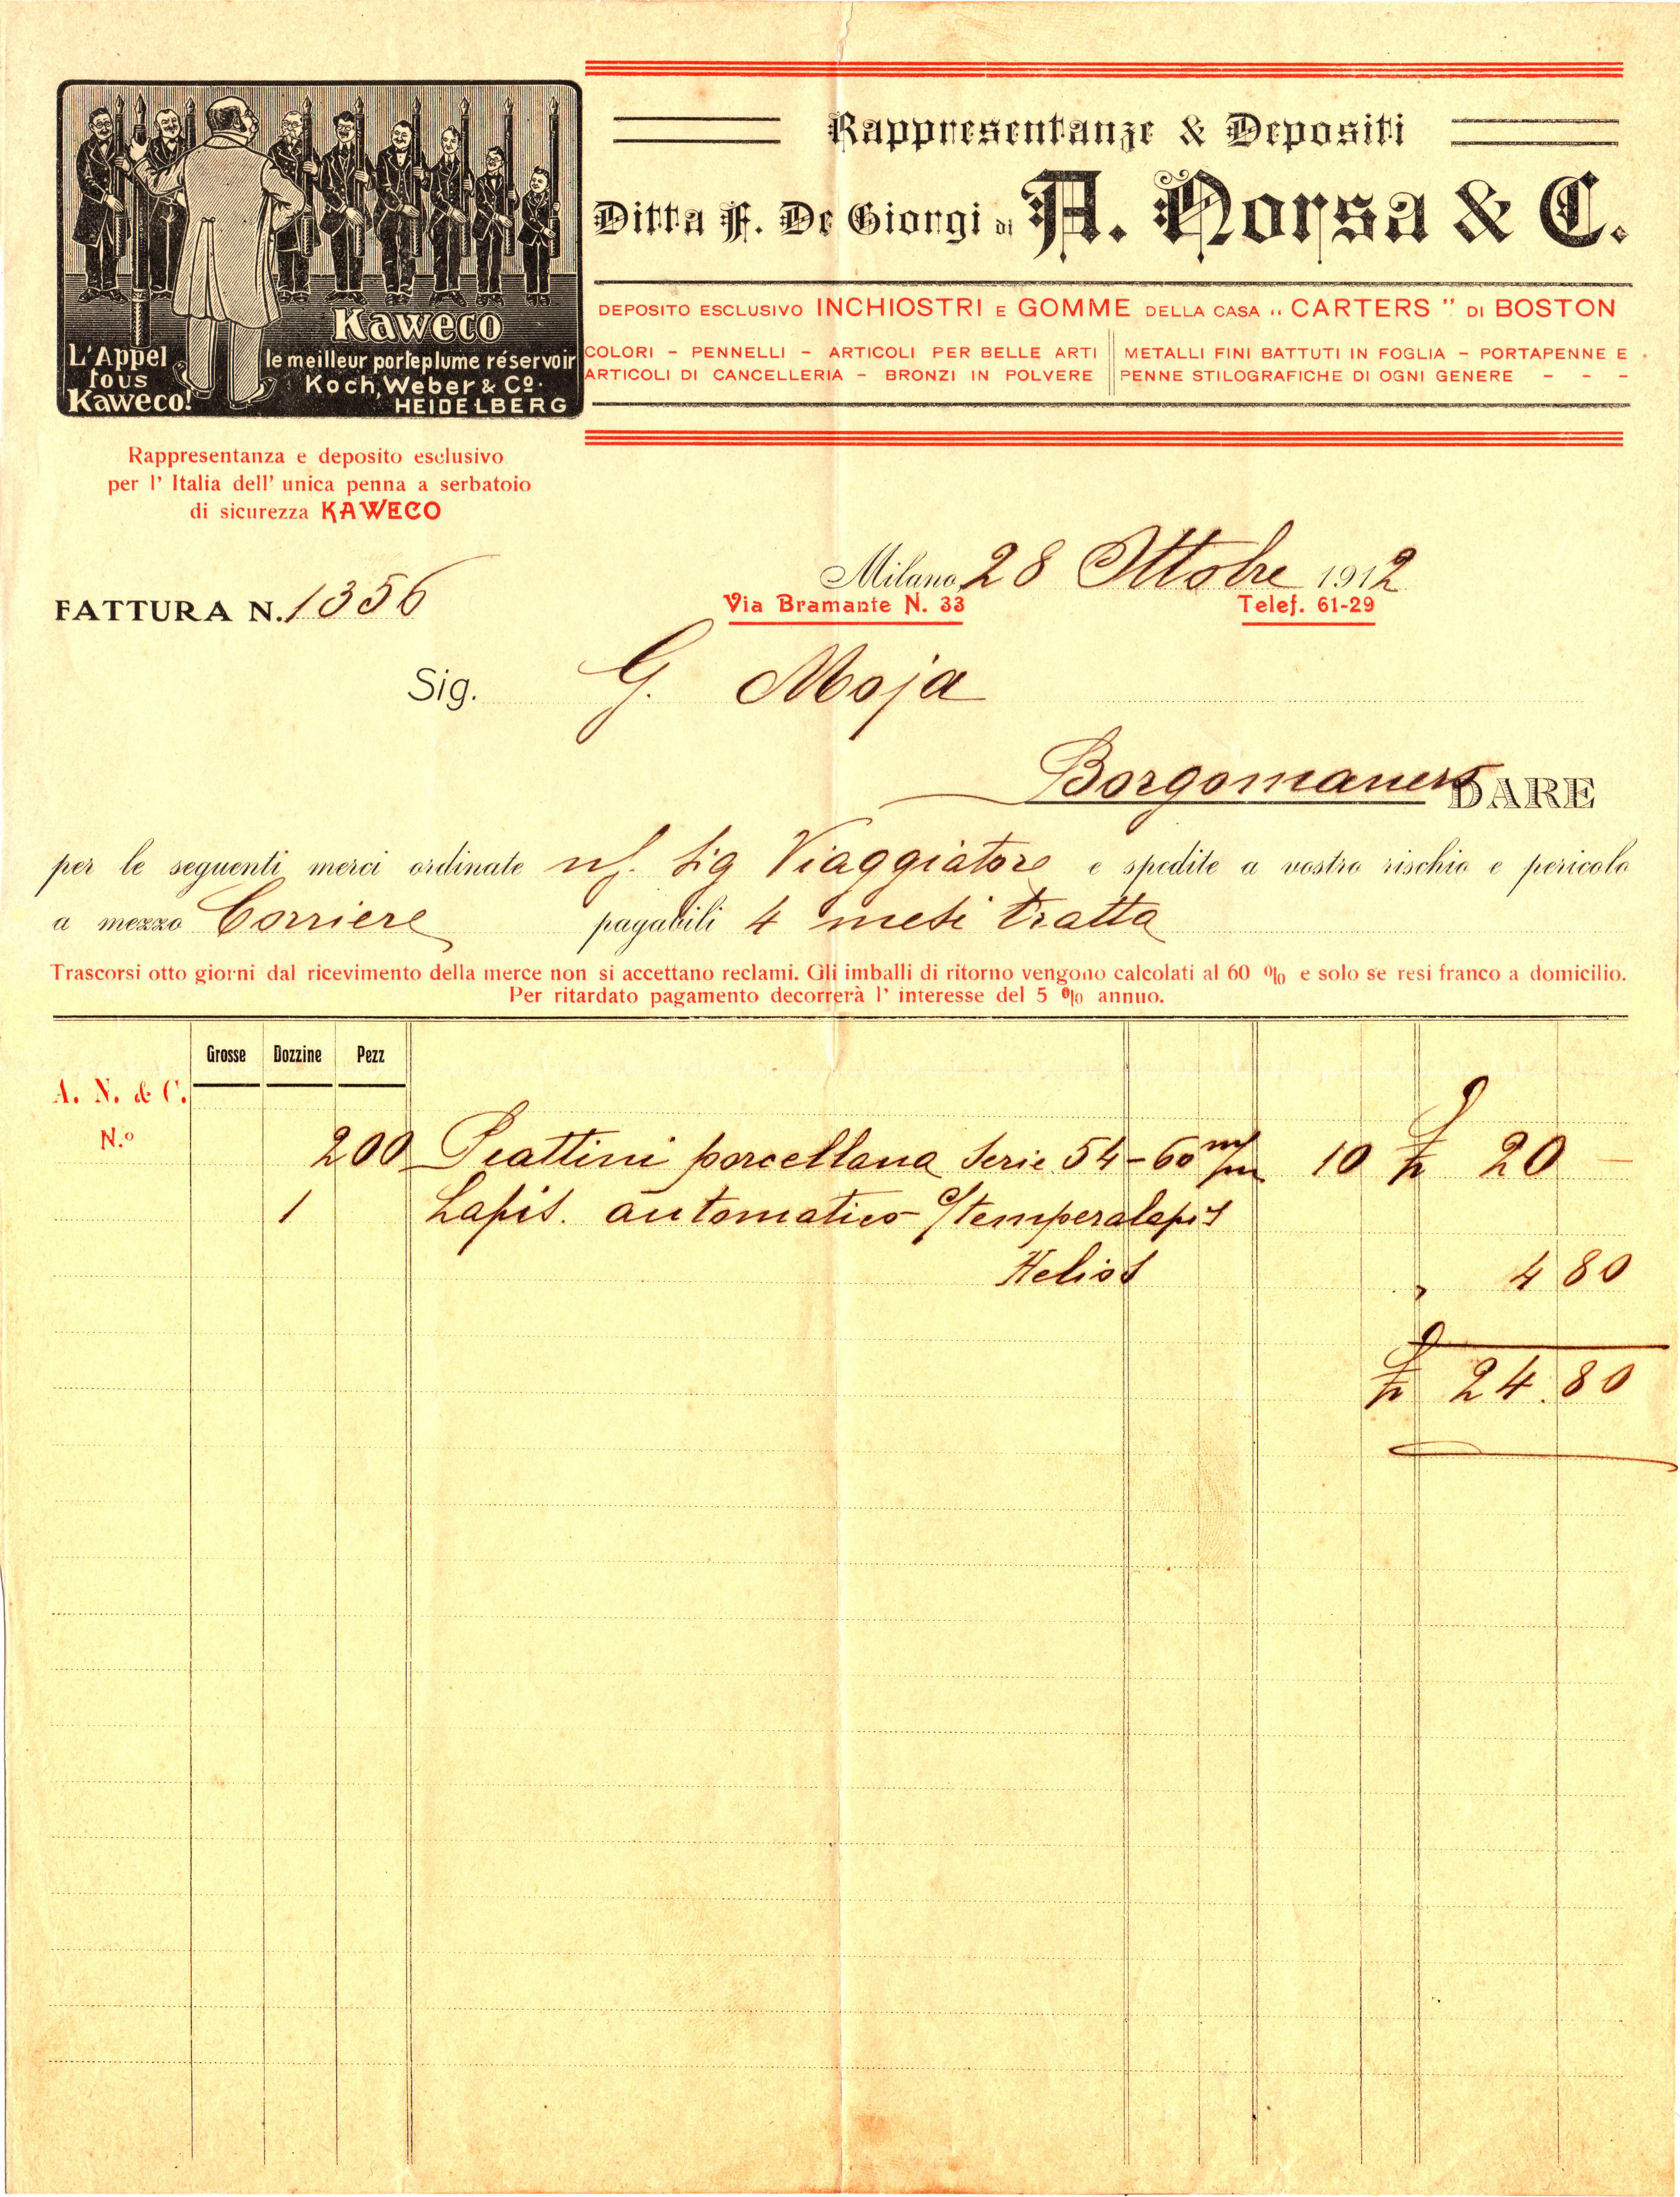 Kaweco
L'Appel
tous
Kaweco!
le meilleur porteplume réservoir
Koch, Weber & Co.
HEIDELBERG
Rappresentanze & Depositi
Ditta F. De Giorgi di A. Norsa & C.
DEPOSITO ESCLUSIVO INCHIOSTRI E GOMME DELLA CASA „ CARTERS " DI BOSTON
COLORI - PENNELLI - ARTICOLI PER BELLE ARTI
ARTICOLI DI CANCELLERIA - BRONZI IN POLVERE
METALLI FINI BATTUTI IN FOGLIA - PORTAPENNE E
PENNE STILOGRAFICHE DI OGNI GENERE - - -
Rappresentanza e deposito esclusivo
per l' Italia dell' unica penna a serbatoio
di sicurezza KAWECO
Milano, 28 Ottobre 1912
Via Bramante N. 33 Telef. 61-29
FATTURA N. 1356
Sig. G. Moja
Borgomanero DARE
per le seguenti merci ordinate n/. Sig Viaggiatore e spedite a vostro rischio e pericolo
a mezzo Corriere pagabili 4 mesi tratta
Trascorsi otto giorni dal ricevimento della merce non si accettano reclami. Gli imballi di ritorno vengono calcolati al 60 % e solo se resi franco a domicilio.
Per ritardato pagamento decorrerà l' interesse del 5 % annuo.
Grosse Dozzine Pezz
A. N. & C.
N.º
200 Piattini porcellana Serie 54-60 m/m 10 £ 20 —
1 Lapis. automatico c/temperalapis
Helios " 4 80
£ 24.80